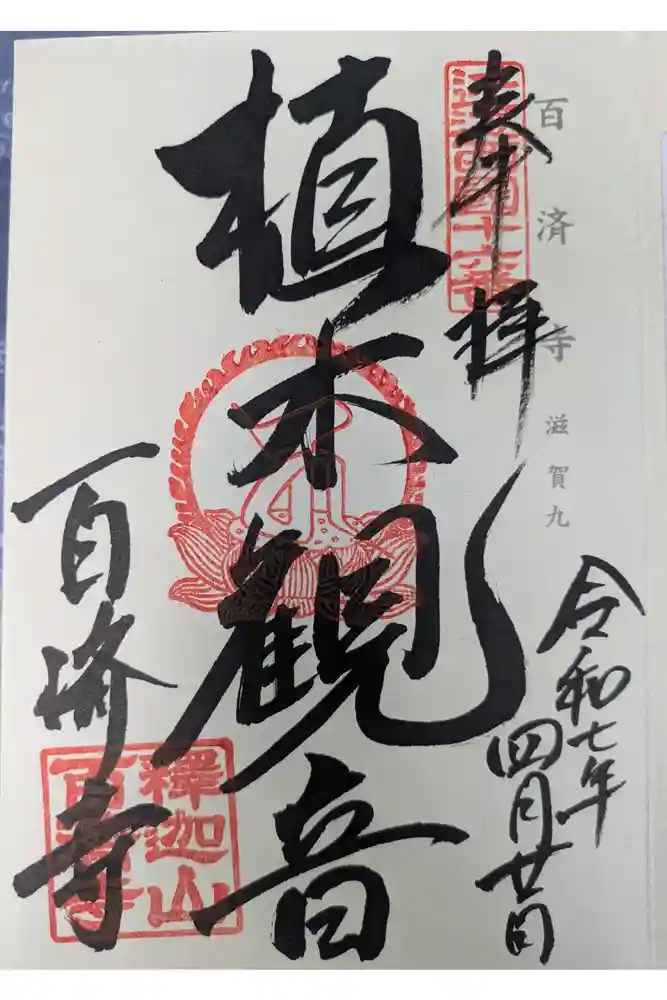 百済寺 滋賀九
奉拝
令和七年
四月廿日
植木観音
百済寺
釋迦山
百濟寺